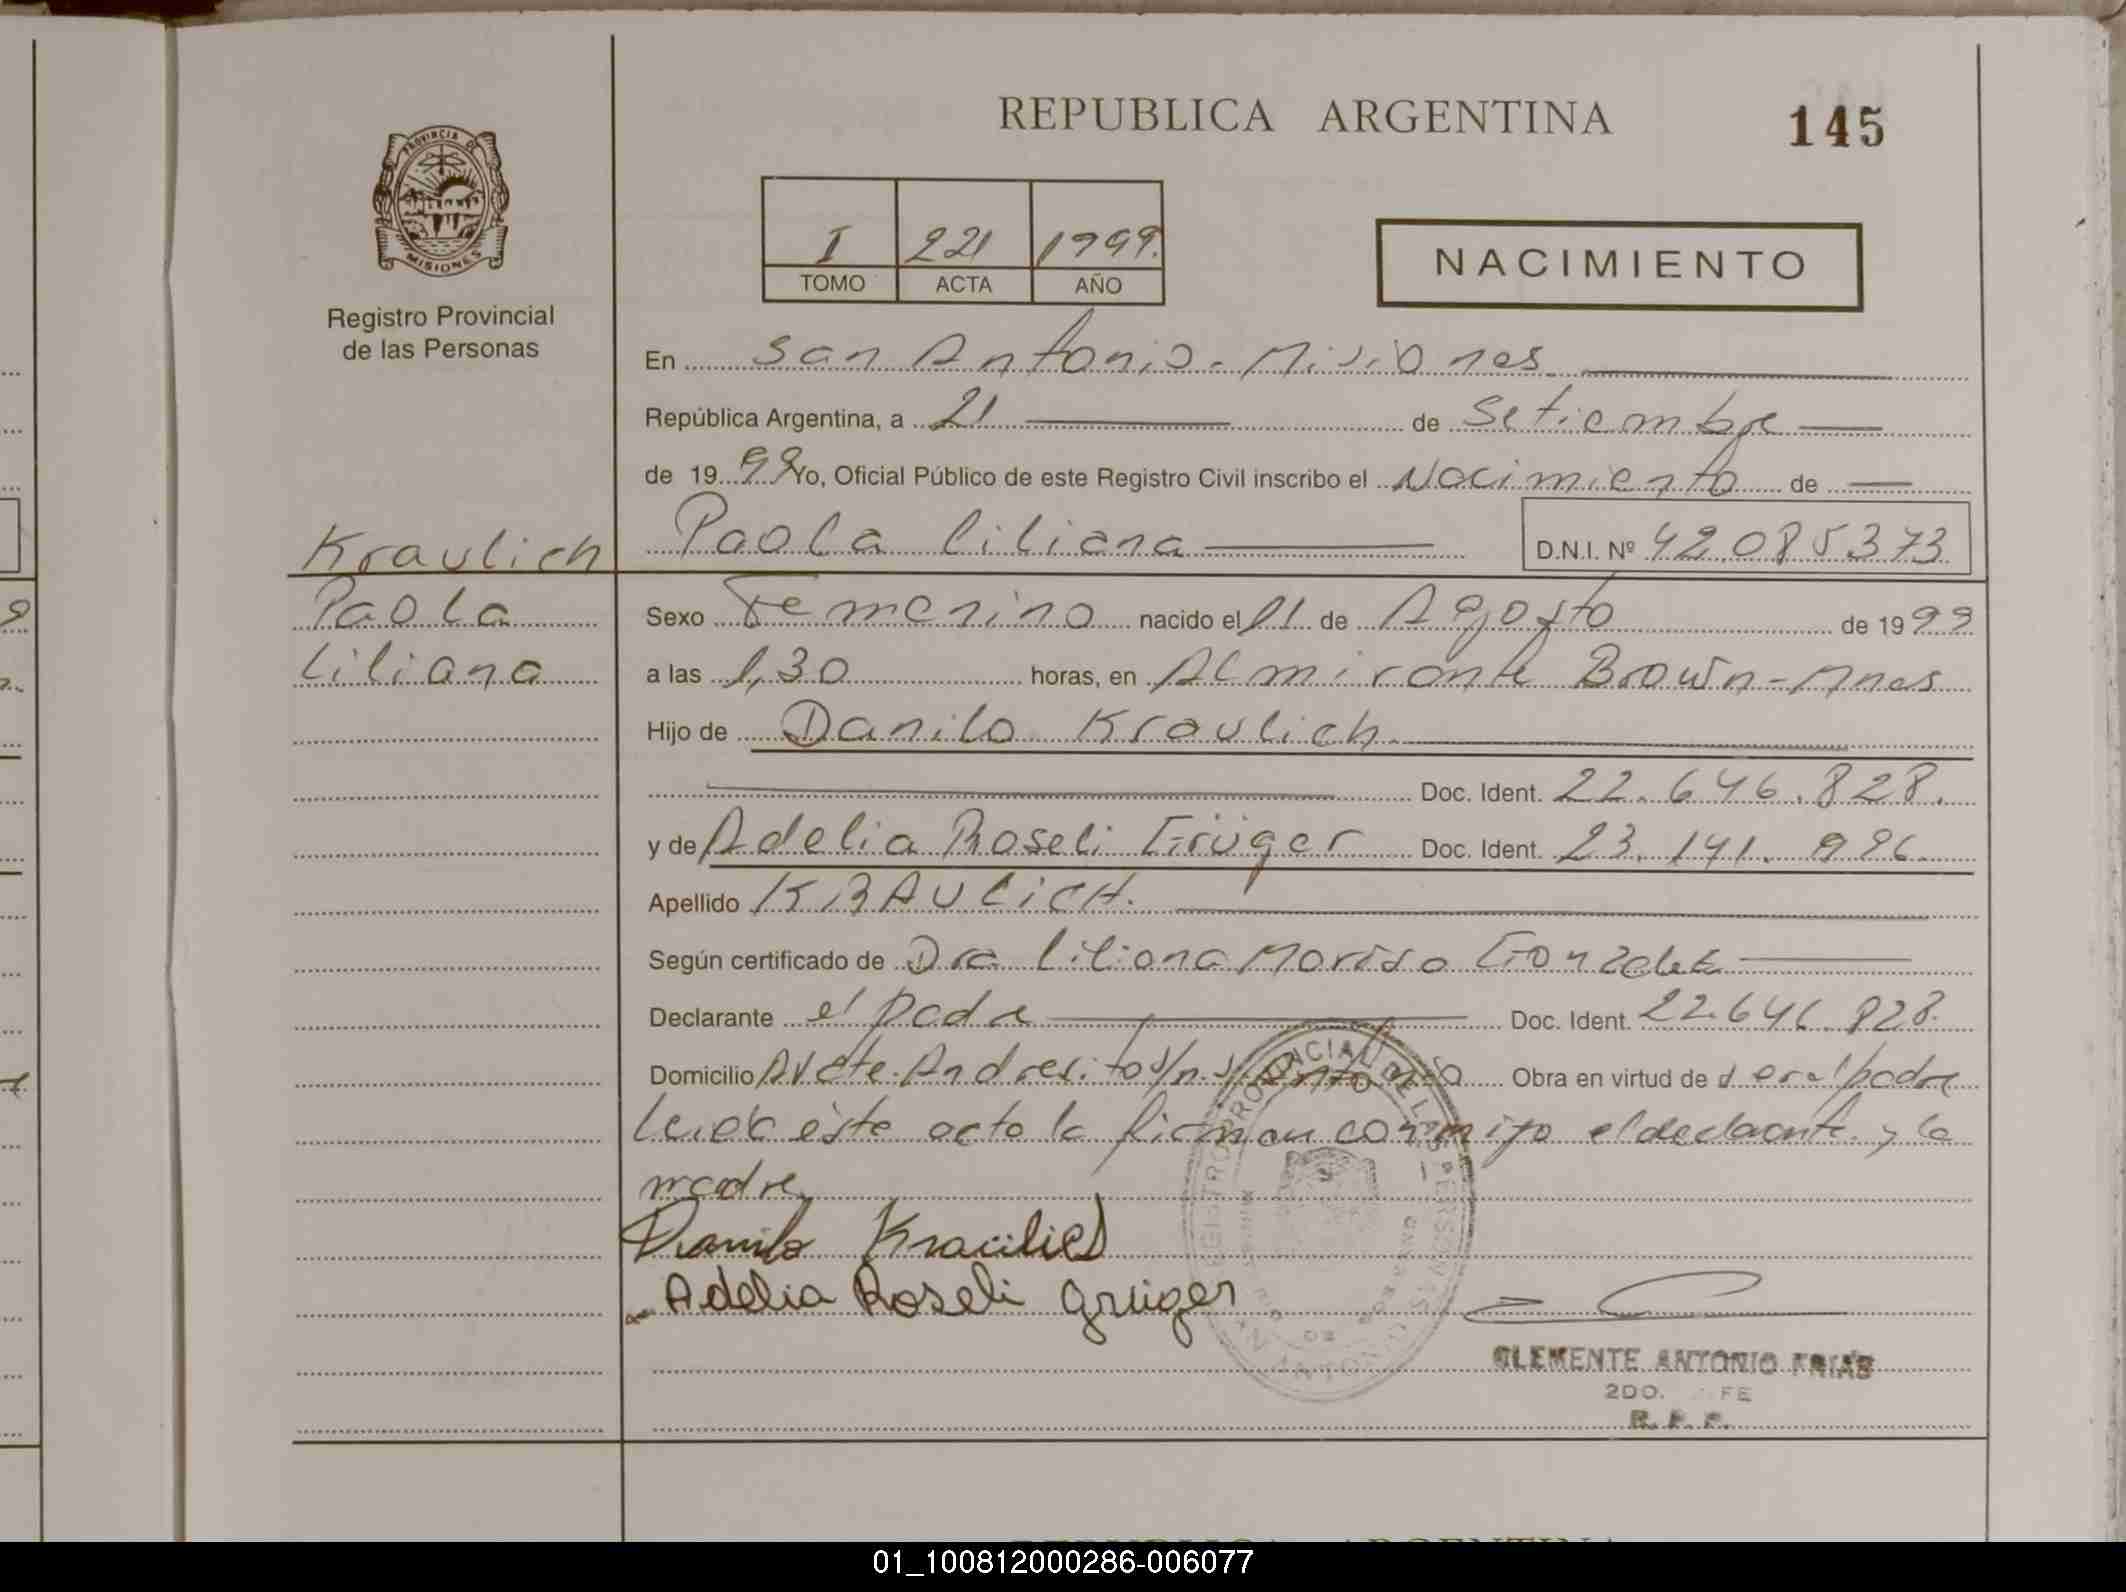 REPUBLICA ARGENTINA
145
PROVINCIA DE
MISIONES
Registro Provincial
de las Personas
I 221 1999.
TOMO ACTA AÑO
NACIMIENTO
En San Antonio - Misiones
República Argentina, a 21 de Setiembre
de 1999 Yo, Oficial Público de este Registro Civil inscribo el Nacimiento de
Kraulich Paola Liliana D.N.I. Nº 42085373
Paola
Liliana
Sexo Femenino nacido el 11 de Agosto de 1999
a las 1,30 horas, en Almirante Brown - Mnes
Hijo de Danilo Kraulich
Doc. Ident. 22.646.828.
y de Adelia Roseli Grüger Doc. Ident. 23.141.996.
Apellido KRAULICH.
Según certificado de Dra Liliana Gonzalez
Declarante el padre Doc. Ident. 22.646.828.
Domicilio Avdte. Andresito s/n. S. Antonio Obra en virtud de ser el padre
Leida este acta la firman conmigo el declarante y la
madre
Danilo Kraulich
Adelia Roseli Grüger
REGISTRO PROVINCIAL DE LAS PERSONAS
SAN ANTONIO
CLEMENTE ANTONIO FRIAS
2DO. FE
R. P. P.
REPUBLICA ARGENTINA
01_100812000286-006077